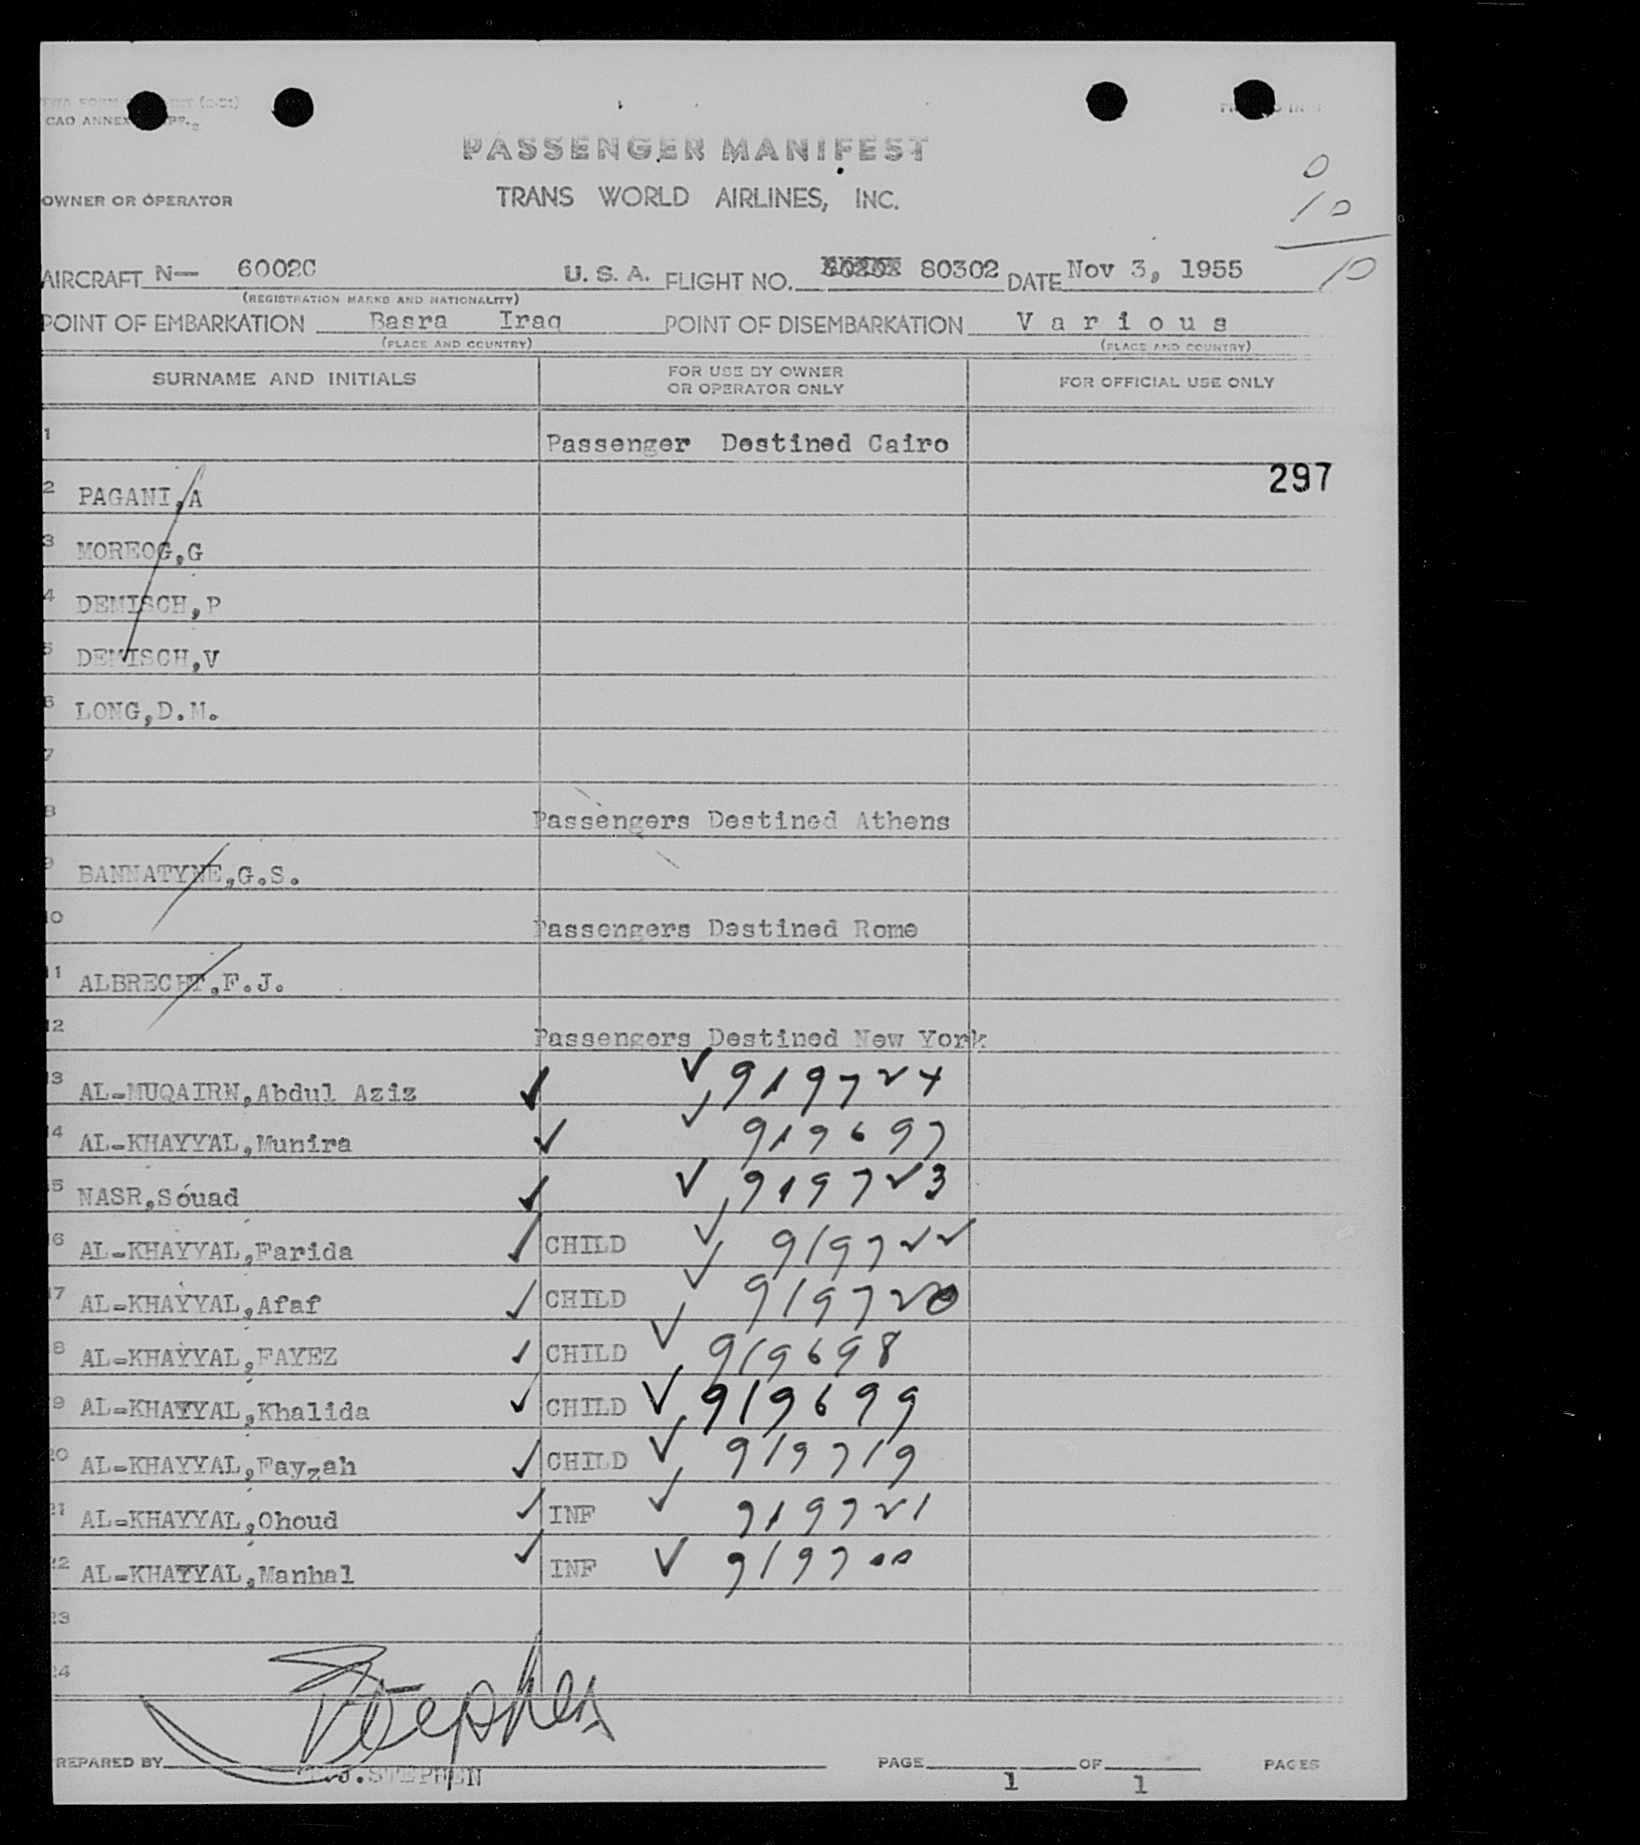 CAO ANNEX
PASSENGER MANIFEST
OWNER OR OPERATOR TRANS WORLD AIRLINES, INC.
0
10
10
AIRCRAFT N— 6002C U. S. A. FLIGHT NO. 80302 DATE Nov 3, 1955
(REGISTRATION MARKS AND NATIONALITY)
POINT OF EMBARKATION Basra Iraq POINT OF DISEMBARKATION Various
(PLACE AND COUNTRY) (PLACE AND COUNTRY)
SURNAME AND INITIALS FOR USE BY OWNER OR OPERATOR ONLY FOR OFFICIAL USE ONLY
1 Passenger Destined Cairo
297
2 PAGANI,A
3 MOREOG,G
4 DEMISCH,P
5 DEMISCH,V
6 LONG,D.M.
7
8 Passengers Destined Athens
9 BANNATYNE,G.S.
10 Passengers Destined Rome
11 ALBRECHT,F.J.
12 Passengers Destined New York
13 AL-MUQAIRN,Abdul Aziz ✓ ✓ 919724
14 AL-KHAYYAL,Munira ✓ ✓ 919697
15 NASR,Souad ✓ ✓ 919723
16 AL-KHAYYAL,Farida ✓ CHILD ✓ 919722
17 AL-KHAYYAL,Afaf ✓ CHILD ✓ 919720
18 AL-KHAYYAL,FAYEZ ✓ CHILD ✓ 919698
19 AL-KHAYYAL,Khalida ✓ CHILD ✓ 919699
20 AL-KHAYYAL,Fayzah ✓ CHILD ✓ 919719
21 AL-KHAYYAL,Ohoud ✓ INF ✓ 919721
22 AL-KHAYYAL,Manhal ✓ INF ✓ 919700
23
24
Stephen
PREPARED BY J.STEPHEN PAGE 1 OF 1 PAGES